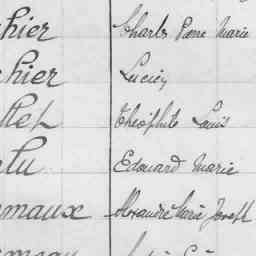 chier Charles Pierre Marie
chier Lucien
llet Théophile Louis
lu Edouard Marie
rmaux Alexandre Marie Joseph